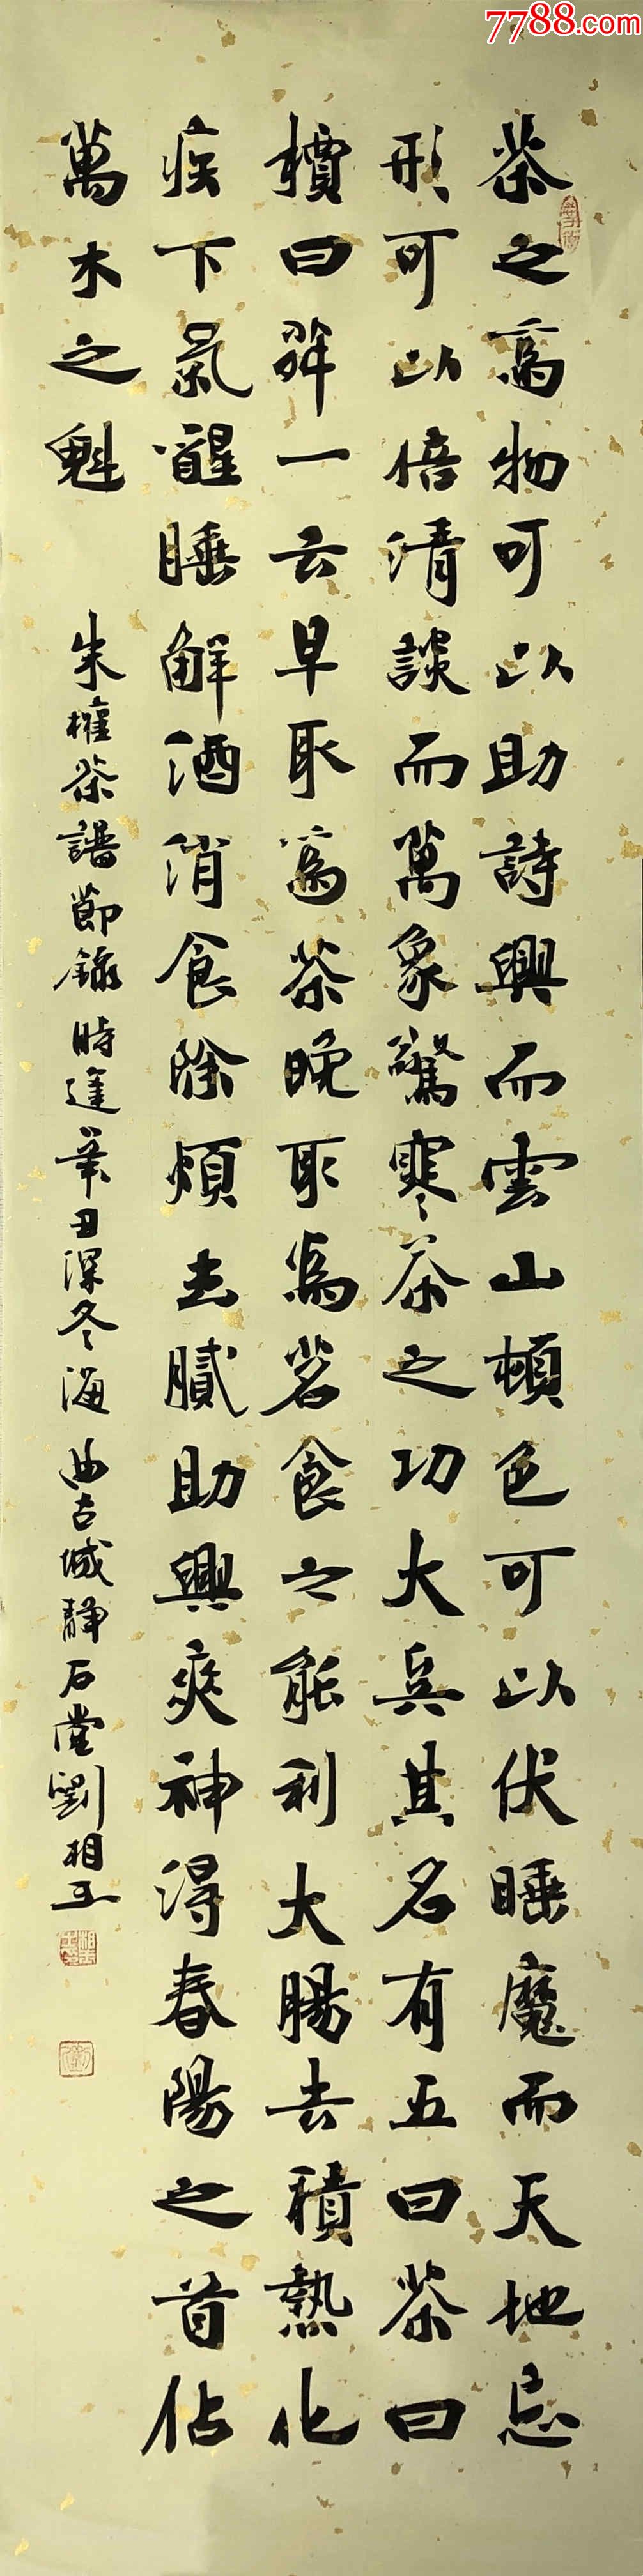 7788.com
茶之為物可以助詩興而雲山頓色可以伏睡魔而天地忘
形可以倍清談而萬象驚寒茶之功大矣其名有五曰茶曰
檟曰一云早取為茶晚取為茗食之能利大腸去積熱化
疾下氣醒睡解酒消食除煩去膩助興爽神得春陽之首佔
萬木之魁 朱權茶譜節錄時逢辛丑深冬海曲古城靜石堂劉相玉